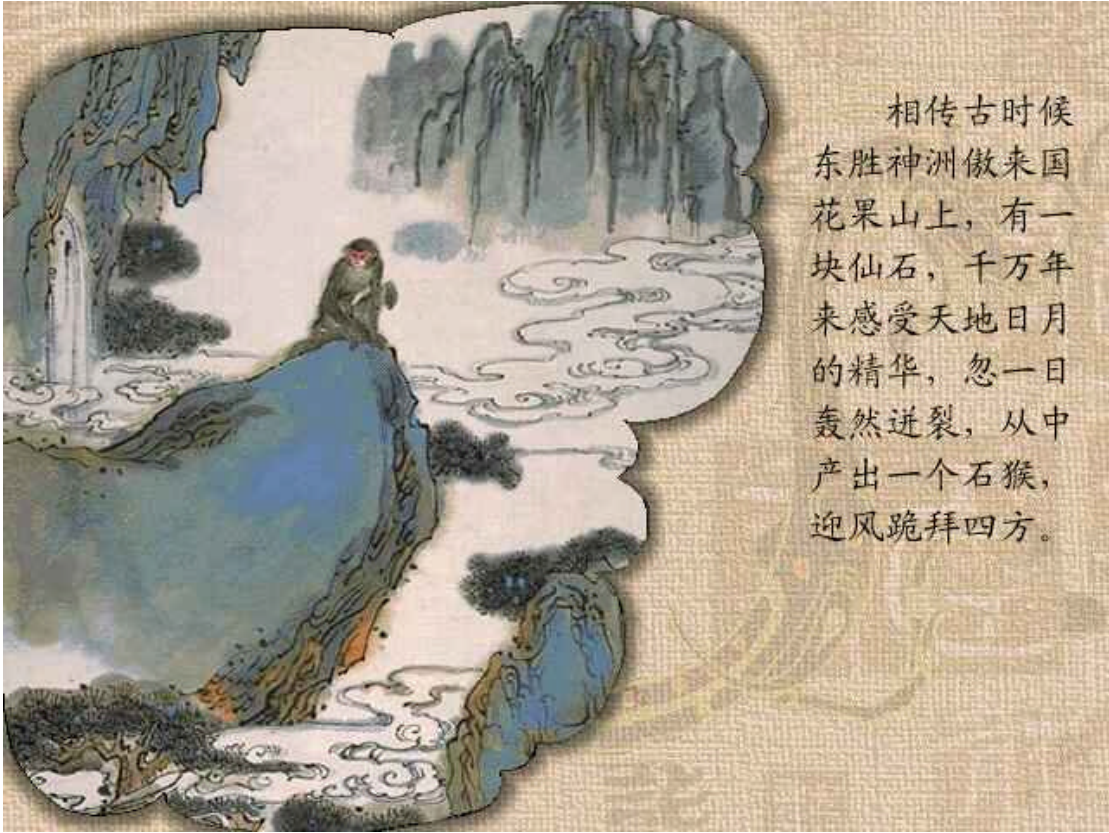 相传古时候
东胜神洲傲来国
花果山上，有一
块仙石，千万年
来感受天地日月
的精华，忽一日
轰然迸裂，从中
产出一个石猴，
迎风跪拜四方。